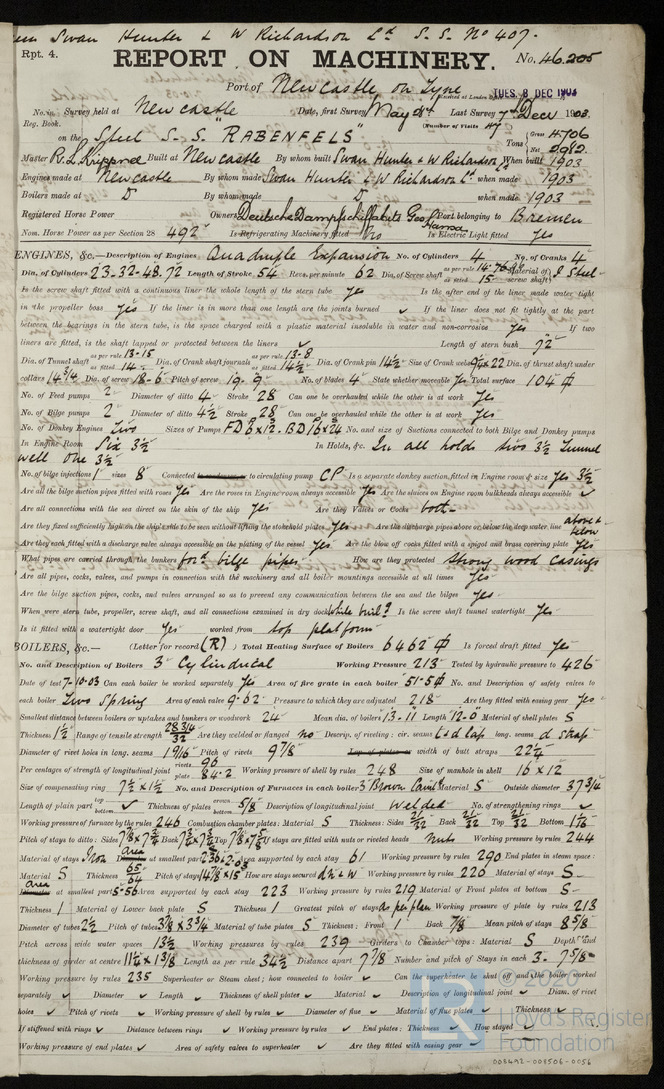 Swan Hunter & W Richardson Ld S. S. No 407.
Rpt. 4. REPORT ON MACHINERY. No. 46205
Port of Newcastle on Tyne
TUES. 8 DEC 1903
No. in Survey held at Newcastle Date, first Survey May Last Survey 7th Decr 1903
Reg. Book. (Number of Visits 47
on the Steel S. S. "RABENFELS" Tons { Gross 4706 Net 2982
Master Built at Newcastle By whom built Swan Hunter & W Richardson Ld When built 1903
Engines made at Newcastle By whom made Swan Hunter & W Richardson Ld when made 1903
Boilers made at Do By whom made Do when made 1903
Registered Horse Power Owners Deutsche Dampschiffahrts Ges Hansa Port belonging to Bremen
Nom. Horse Power as per Section 28 492 Is Refrigerating Machinery fitted No Is Electric Light fitted Yes
ENGINES, &c.—Description of Engines Quadruple Expansion No. of Cylinders 4 No. of Cranks 4
Dia. of Cylinders 23-32-48-72 Length of Stroke 54 Revs. per minute 62 Dia. of Screw shaft as per rule 14.76 as fitted 15 Material of screw shaft Steel
Is the screw shaft fitted with a continuous liner the whole length of the stern tube Yes Is the after end of the liner made water tight
in the propeller boss Yes If the liner is in more than one length are the joints burned ✓ If the liner does not fit tightly at the part
between the bearings in the stern tube, is the space charged with a plastic material insoluble in water and non-corrosive Yes If two
liners are fitted, is the shaft lapped or protected between the liners ✓ Length of stern bush 72
Dia. of Tunnel shaft as per rule 13.15 as fitted 14 Dia. of Crank shaft journals as per rule 13.8 as fitted 14½ Dia. of Crank pin 14½ Size of Crank webs 9¼ x 22 Dia. of thrust shaft under
collars 14¾ Dia. of screw 18-6 Pitch of screw 19-9 No. of blades 4 State whether moveable Yes Total surface 104
No. of Feed pumps 2 Diameter of ditto 4 Stroke 28 Can one be overhauled while the other is at work Yes
No. of Bilge pumps 2 Diameter of ditto 4½ Stroke 28 Can one be overhauled while the other is at work Yes
No. of Donkey Engines Two Sizes of Pumps FD 8x12. BD 16x24 No. and size of Suctions connected to both Bilge and Donkey pumps
In Engine Room Six 3½ In Holds, &c. In all holds two 3½ Tunnel
well one 3½
No. of bilge injections 1 sizes 8 Connected to circulating pump CP Is a separate donkey suction fitted in Engine room & size Yes 3½
Are all the bilge suction pipes fitted with roses Yes Are the roses in Engine room always accessible Yes Are the sluices on Engine room bulkheads always accessible ✓
Are all connections with the sea direct on the skin of the ship Yes Are they Valves or Cocks both
Are they fixed sufficiently high on the ship's side to be seen without lifting the stokehold plates Yes Are the discharge pipes above or below the deep water line above & below
Are they each fitted with a discharge valve always accessible on the plating of the vessel Yes Are the blow off cocks fitted with a spigot and brass covering plate Yes
What pipes are carried through the bunkers ford bilge pipes How are they protected strong wood casings
Are all pipes, cocks, valves, and pumps in connection with the machinery and all boiler mountings accessible at all times Yes
Are the bilge suction pipes, cocks, and valves arranged so as to prevent any communication between the sea and the bilges Yes
When were stern tube, propeller, screw shaft, and all connections examined in dry dock Is the screw shaft tunnel watertight Yes
Is it fitted with a watertight door Yes worked from top platform
BOILERS, &c.— (Letter for record (R)) Total Heating Surface of Boilers 6462 Is forced draft fitted Yes
No. and Description of Boilers 3 Cylindrical Working Pressure 213 Tested by hydraulic pressure to 426
Date of test 7-10-03 Can each boiler be worked separately Yes Area of fire grate in each boiler 51.5 No. and Description of safety valves to
each boiler Two Spring Area of each valve 9.62 Pressure to which they are adjusted 218 Are they fitted with easing gear Yes
Smallest distance between boilers or uptakes and bunkers or woodwork 24 Mean dia. of boilers 13-11 Length 12-0 Material of shell plates S
Thickness 1½ Range of tensile strength 28¾/32 Are they welded or flanged no Descrip. of riveting: cir. seams l & d lap long. seams d straps
Diameter of rivet holes in long. seams 1 9/16 Pitch of rivets 9⅞ Lap of plates or width of butt straps 22¼
Per centages of strength of longitudinal joint rivets 96 plate 84.2 Working pressure of shell by rules 248 Size of manhole in shell 16 x 12
Size of compensating ring 7½ x 1½ No. and Description of Furnaces in each boiler 3 Brown Material S Outside diameter 37¾
Length of plain part top bottom ✓ Thickness of plates crown bottom 5/8 Description of longitudinal joint welded No. of strengthening rings ✓
Working pressure of furnace by the rules 246 Combustion chamber plates: Material S Thickness: Sides 21/32 Back 21/32 Top 21/32 Bottom
Pitch of stays to ditto: Sides Back Top If stays are fitted with nuts or riveted heads nuts Working pressure by rules 244
Material of stays Iron Area at smallest part Area supported by each stay 61 Working pressure by rules 290 End plates in steam space:
Material S Thickness Pitch of stays 14⅞ x 15 How are stays secured dn & w Working pressure by rules 220 Material of stays S
Area at smallest part 5.56 Area supported by each stay 223 Working pressure by rules 219 Material of Front plates at bottom S
Thickness 1 Material of Lower back plate S Thickness 1 Greatest pitch of stays as per plan Working pressure of plate by rules 213
Diameter of tubes 2½ Pitch of tubes 3⅞ x 3¾ Material of tube plates S Thickness: Front 1 Back 7/8 Mean pitch of stays 8⅝
Pitch across wide water spaces 13½ Working pressures by rules 239 Girders to Chamber tops: Material S Depth and
thickness of girder at centre 11½ x 1⅜ Length as per rule 34½ Distance apart 7⅞ Number and pitch of Stays in each 3. 7⅝
Working pressure by rules 235 Superheater or Steam chest; how connected to boiler ✓ Can the superheater be shut off and the boiler worked
separately ✓ Diameter ✓ Length ✓ Thickness of shell plates ✓ Material ✓ Description of longitudinal joint ✓ Diam. of rivet
holes ✓ Pitch of rivets ✓ Working pressure of shell by rules ✓ Diameter of flue ✓ Material of flue plates ✓ Thickness ✓
If stiffened with rings ✓ Distance between rings ✓ Working pressure by rules ✓ End plates: Thickness ✓ How stayed ✓
Working pressure of end plates ✓ Area of safety valves to superheater ✓ Are they fitted with easing gear ✓
© 2020
Lloyd's Register
Foundation
008492-008506-0056